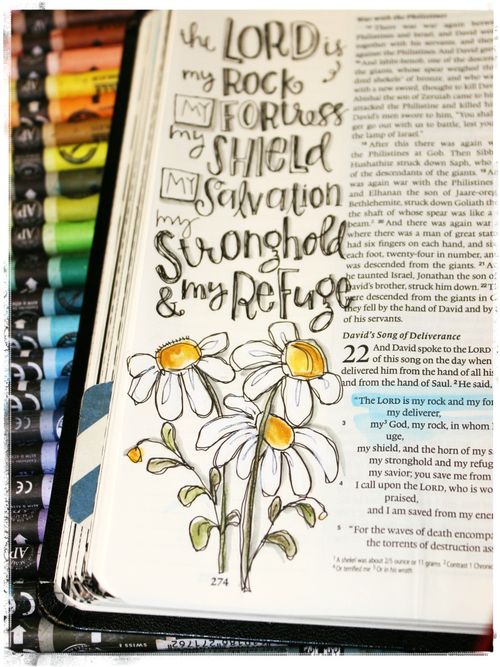 the LORD is
my ROCK
MY FORTRess
my SHIELD
MY Salvation
my
Stronghold
& my ReFuge
274
War with the Philistines
There was war again
Philistines and Israel, and David
together with his servants, and they
against the Philistines. And David
And Ishbi-benob, one of the descen
the giants, whose spear weighed
dred shekels of bronze, and who
with a new sword, thought to kill Da
Abishai the son of Zeruiah came to hi
attacked the Philistine and killed hi
David's men swore to him, "You sha
not go out with us to battle, lest you
the lamp of Israel."
18 After this there was again w
the Philistines at Gob. Then Sibb
Hushathite struck down Saph, who
of the descendants of the giants. 19 A
was again war with the Philistines
and Elhanan the son of Jaare-oreg
Bethlehemite, struck down Goliath th
the shaft of whose spear was like a
beam. 20 And there was again war
where there was a man of great stat
had six fingers on each hand, and six
each foot, twenty-four in number, an
was descended from the giants. 21 A
he taunted Israel, Jonathan the son o
David's brother, struck him down. 22 T
were descended from the giants in G
they fell by the hand of David and by
of his servants.
David's Song of Deliverance
22 And David spoke to the LORD
of this song on the day when
delivered him from the hand of all his
and from the hand of Saul. 2 He said,
"The LORD is my rock and my for
my deliverer,
3 my God, my rock, in whom I
uge,
my shield, and the horn of my s
my stronghold and my refug
my savior; you save me from
4 I call upon the LORD, who is wo
praised,
and I am saved from my ene
5 "For the waves of death encomp
the torrents of destruction ass
1 A shekel was about 2/5 ounce or 11 grams 2 Contrast 1 Chronic
4 Or terrified me 5 Or in his wrath